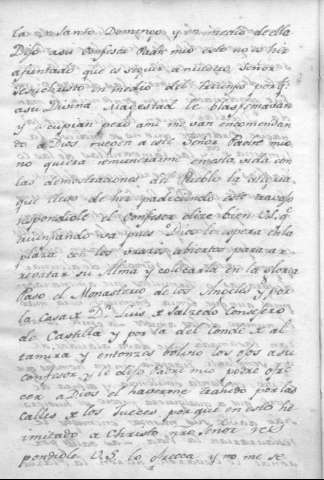 la a Santo Domingo y en medio de ella
Dijo a su Confesor Padre mio esto no es hir
afrentado que es seguir a nuestro Señor
Jesuchristo en medio del
a su Divina Magestad le blasfemavan
y escupian pero a mi me van encomendan
do a Dios rueguen a este Señor Padre mio
no quiera remunerarme en esta vida con
las demostraciones del Pueblo la
que llego de hir padeciendo este travajo
respondiole el Confesor dice bien V.S. q.
triunfando va pues Dios le espera en la
plaza con los brazos abiertos para
su Alma y colocarla en la gloria
Paso el Monasterio de los Angeles y por
la Casa de Dn. Luis de Salzedo Consejero
de Castilla y por la del Conde de Al
tamira y entonzes bolvio los ojos a su
confesor y le dijo Padre mio podre ofre
cer a Dios el haverme trahido por las
calles de los Juezes porque en esto he
imitado a Christo nuestro Señor res
pondiole V.S. lo ofrezca, y no me se